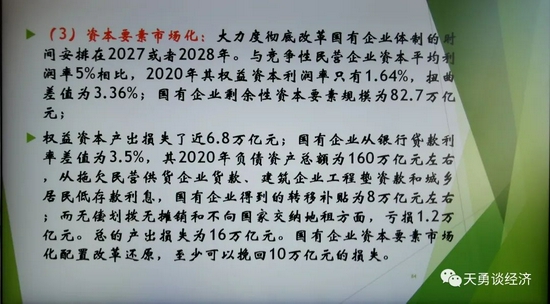 （3）资本要素市场化：大力度彻底改革国有企业体制的时
间安排在2027或者2028年。与竞争性民营企业资本平均利
润率5%相比，2020年其权益资本利润率只有1.64%，扭曲
差值为3.36%；国有企业剩余性资本要素规模为82.7万亿
元；
权益资本产出损失了近6.8万亿元；国有企业从银行贷款利
率差值为3.5%，其2020年负债资产总额为160万亿元左右
，从拖欠民营供货企业货款、建筑企业工程垫资款和城乡
居民低存款利息，国有企业得到的转移补贴为8万亿元左右
；而无偿划拨无摊销和不向国家交纳地租方面，亏损1.2万
亿元。总的产出损失为16万亿元。国有企业资本要素市场
化配置改革还原，至少可以挽回10万亿元的损失。
天勇谈经济